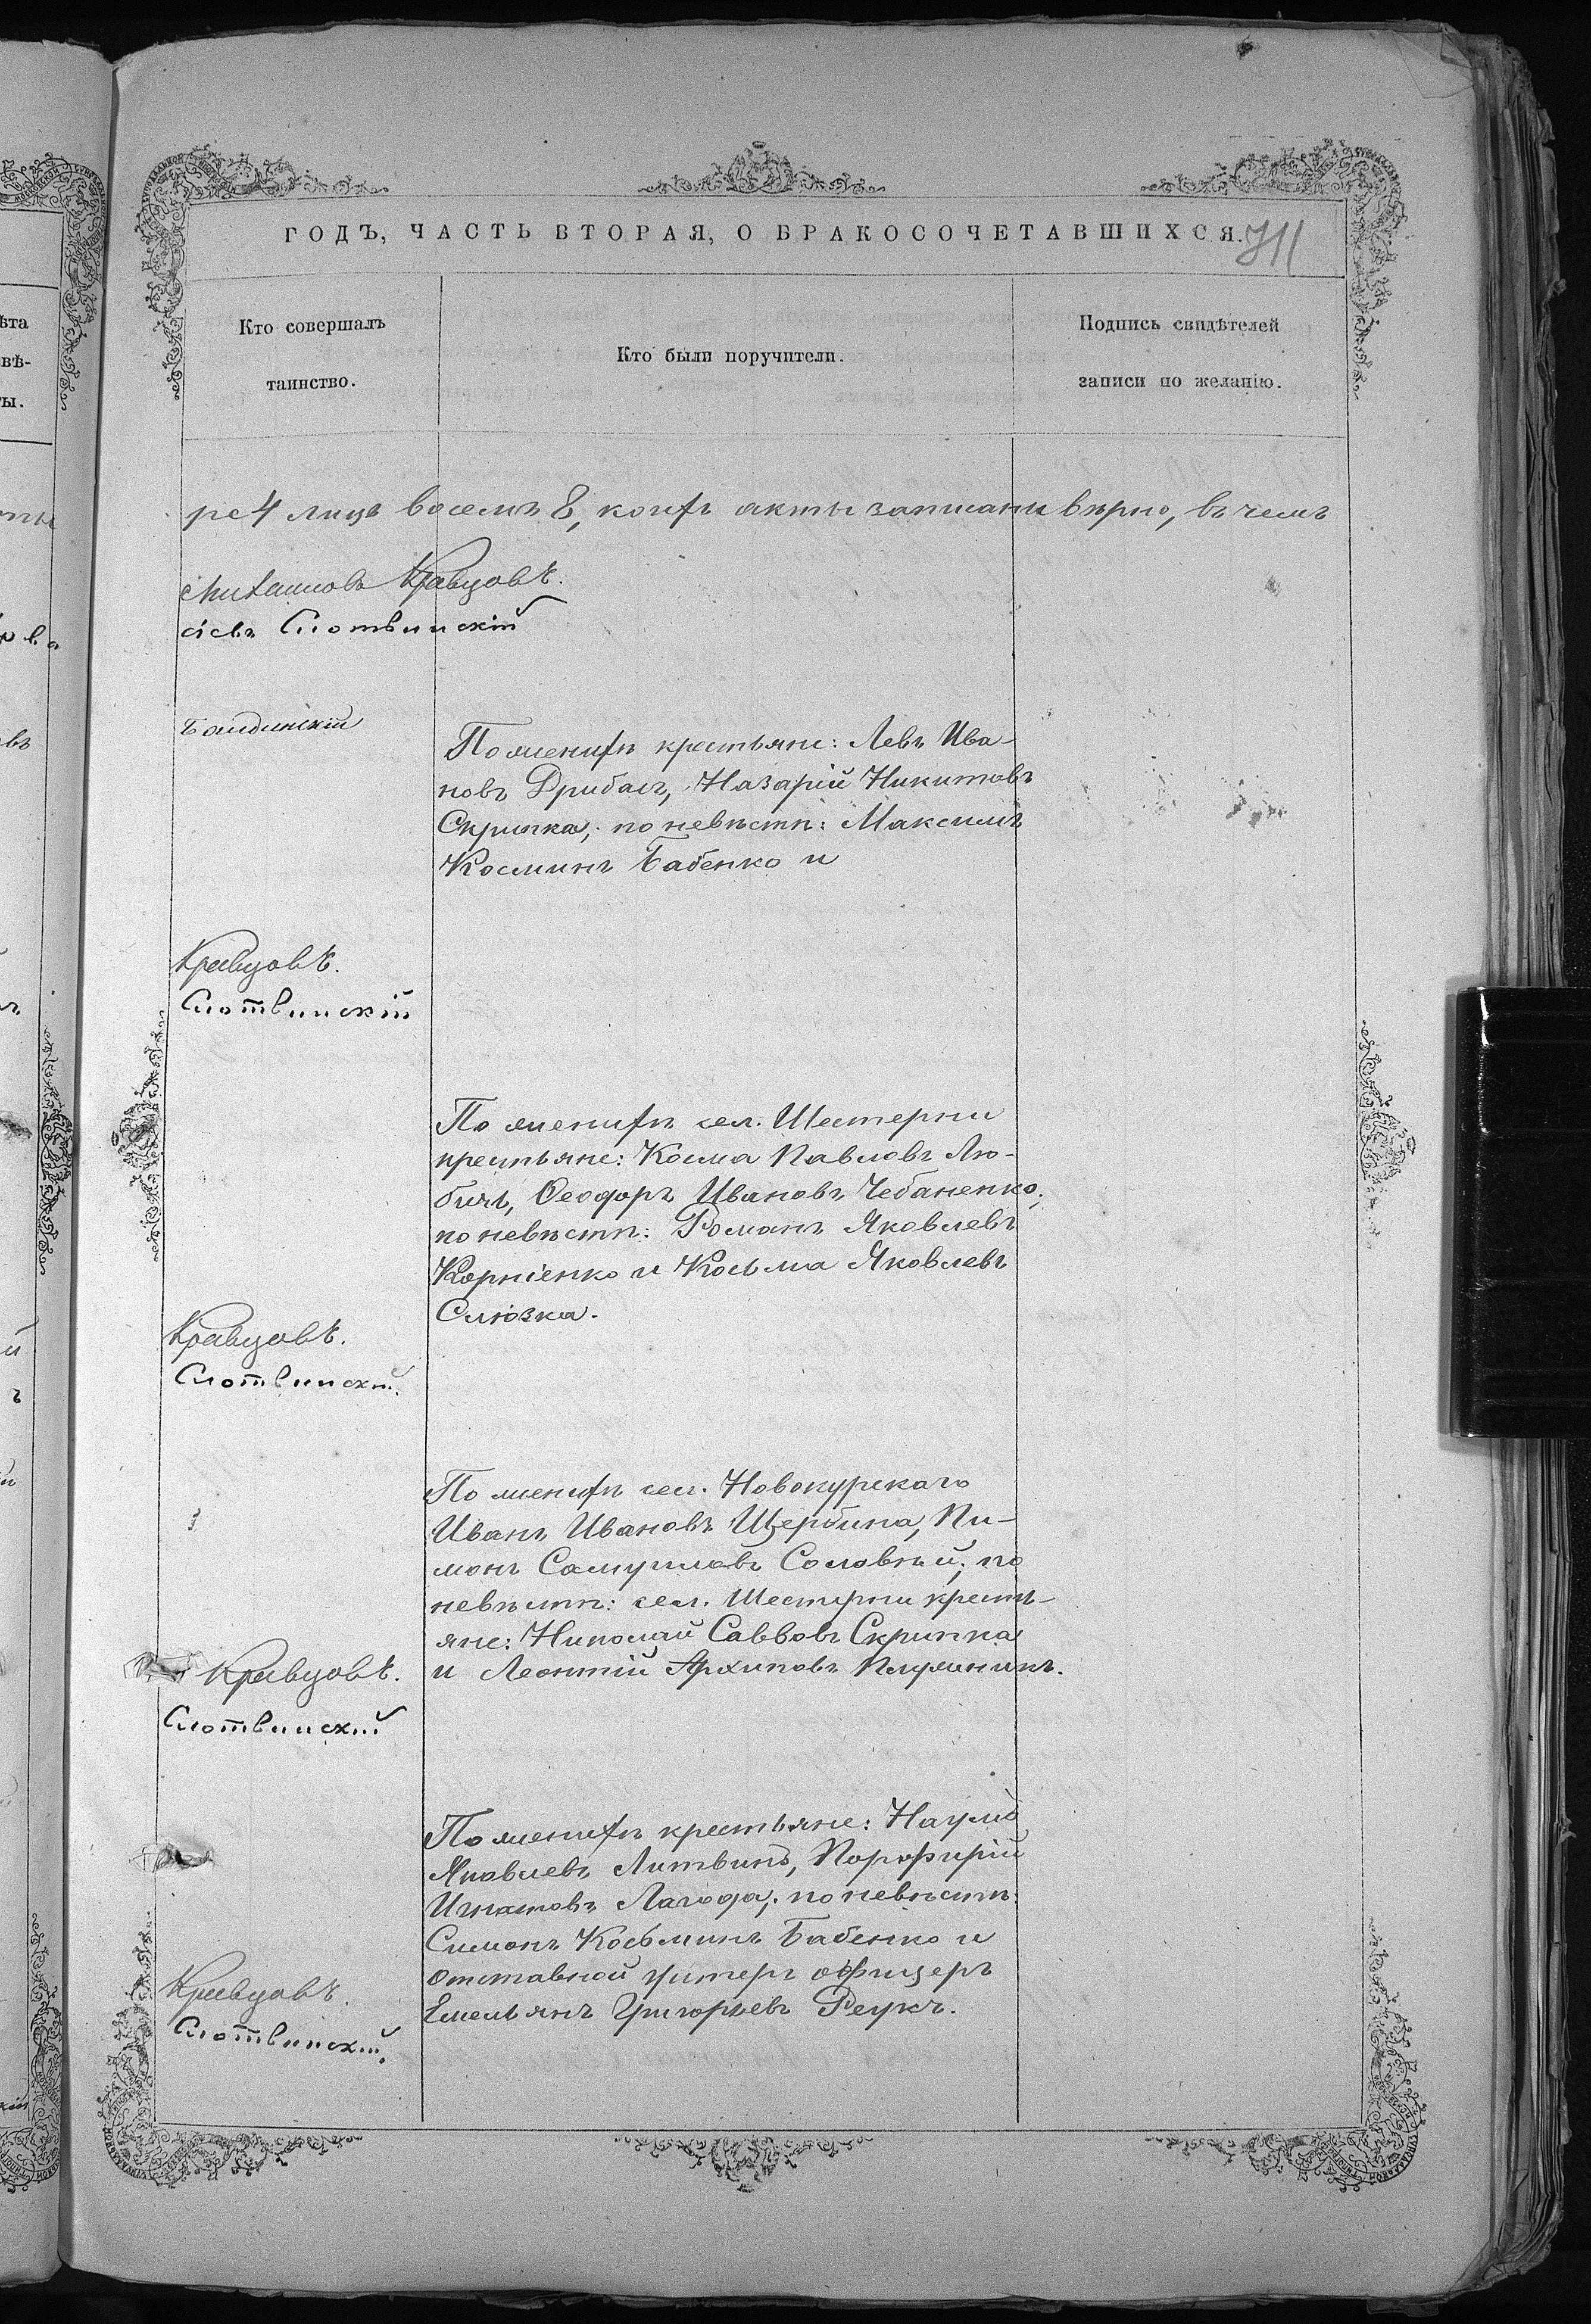 ГОДЪ, ЧАСТЬ ВТОРАЯ, О БРАКОСОЧЕТАВШИХСЯ.
311
Кто совершалъ
таинство.
Кто были поручители.
Подпись свидѣтелей
записи по желанію.
ре 4 лицъ восемъ 8, коихъ акты записаны вѣрно, въ чемъ
Михаиловъ Кравцовъ.
сіевъ Слотвинскій
По женихѣ крестьяне: Левъ Ива-
новъ Дрибасъ, Назарій Никитовъ
Скрипка; по невѣстѣ: Максимъ
Косминъ Бабенко и
Кравцовъ.
Слотвинскій
По женихѣ сел. Шестерни
крестьяне: Косма Павловъ Лю-
бичъ, Ѳеодоръ Ивановъ Чебаненко;
по невѣстѣ: Романъ Яковлевъ
Корніенко и Косьма Яковлевъ
Слюзка.
Кравцовъ.
Слотвинскій.
По женихѣ сел. Новокурскаго
Иванъ Ивановъ Щербина, Пи-
монъ Самуиловъ Соловѣй; по
невѣстѣ: сел. Шестерни кресть-
яне: Николай Саввовъ Скрипка
и Леонтій Архиповъ
Кравцовъ.
Слотвинскій
По женихѣ крестьяне: Наумъ
Яковлевъ Литвинъ, Порфирій
Игнатовъ Лагода; по невѣстѣ:
Симонъ Косьминъ Бабенко и
отставной унтеръ офицеръ
Емельянъ Григорьевъ Реукъ.
Кравцовъ.
Слотвинскій.
ѣта
вѣ-
ты.